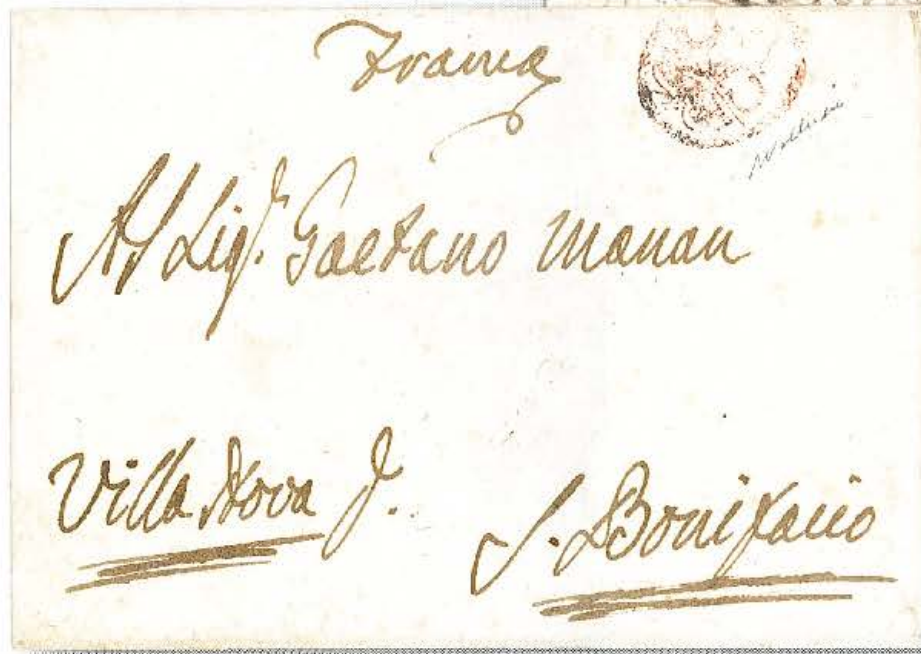 Franca
Al Sig.r Gaetano Manan
Villa Nova p.
S. Bonifacio